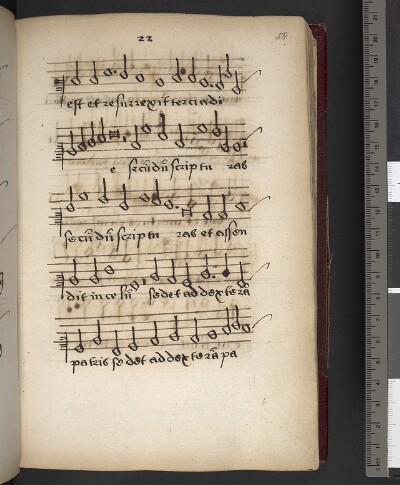 22
est et resurrexit tercia di
e secūdū scriptu ras
secūdū scriptu ras et assen
dit in celū sedet ad dexterā
patris sedet ad dexterā pa